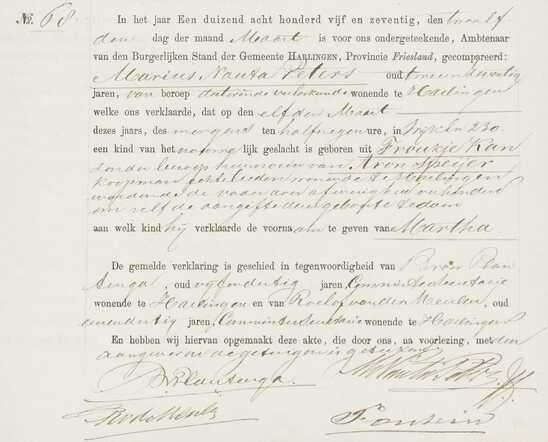 No. 68.
In het jaar Een duizend acht honderd vijf en zeventig, den twaalf
den dag der maand Maart is voor ons ondergeteekende, Ambtenaar
van den Burgerlijken Stand der Gemeente HARLINGEN, Provincie Friesland, gecompareerd:
Marius Nauta Peters oud twee en zeventig
jaren, van beroep doctor in de verloskunde wonende te Harlingen
welke ons verklaarde, dat op den elfden Maart
dezes jaars, des morgens ten half negen ure, in Wijk L n 230
een kind van het vrouwelijk geslacht is geboren uit Froukje Kan
zonder beroep huisvrouw van Aron Speijer
koopman echtelieden wonende te Harlingen
wordende de vader door afwezigheid verhinderd
om zelf de aangifte dezer geboorte te doen
aan welk kind hij verklaarde de voornaam te geven van Martha
De gemelde verklaring is geschied in tegenwoordigheid van
oud jaren, Commies ter Secretarie
wonende te Harlingen en van Roelof van der Meulen, oud
een en dertig jaren, Commies ter Secretarie wonende te Harlingen
En hebben wij hiervan opgemaakt deze akte, die door ons, na voorlezing, met den
aangever en de getuigen is geteekend
Fontein